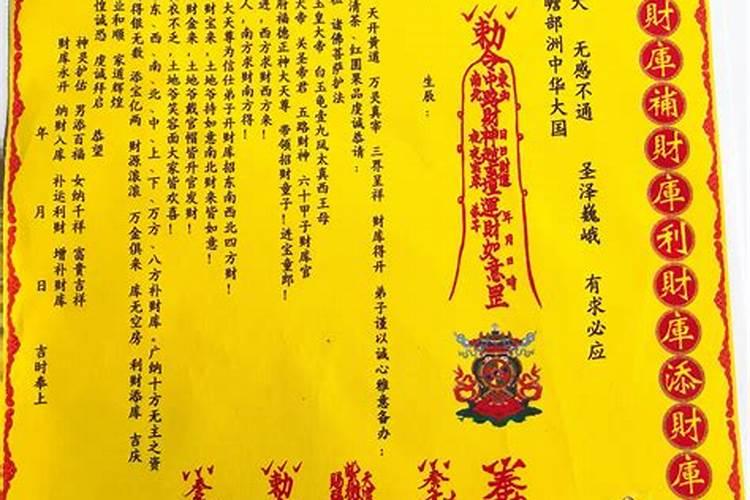 財庫補財庫利財庫添財庫
大 無感不通 圣泽巍峨 有求必应
瞻部洲中华大国
敕令
中路財神趙玄壇運財如意罡
年 月 日 時
生辰：
天开黄道 万灵真宰 三界呈祥 财库得开 弟子谨以诚心雅意备办：
清茶、红圆果品虔诚恭请：
诸佛菩萨护法
玉皇大帝 白玉龟壹九凤太真西王母
大帝 关圣帝君 五路财神 六十甲子财库官
府福德正神大天尊 带领招财童子！进宝童郎！
进，西方求财西方来！
人，南方求财南方得！
大天尊为信仕弟子开财库招东南西北四方财！
财宝来，土地爷持如意南北财来皆如意！
财金来，土地爷戴官帽皆升官发财！
衣不乏，土地爷笑容面大家皆欢喜！
东、西、南、北、中、上、下、万方、八方补财库。广纳十方无主之资
得银无数 添宝亿两 财源滚滚 万金俱来 库无空房 利财添库 吉庆
业和顺 家道辉煌
惶诚恐 虔诚拜启 恭望
神灵护估 男添百福 女纳千祥 富贵吉祥
财库永开 纳财入库 补运利财 增补财库
年 月 日 吉时奉上